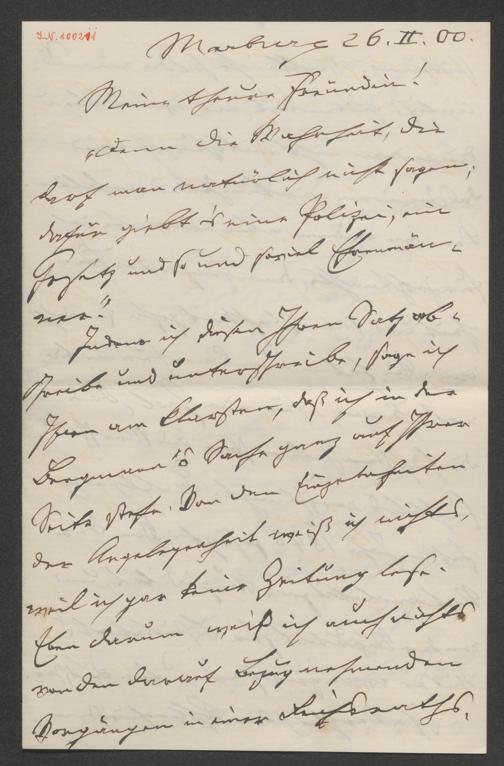 I.N. 100211
Marburg 26.II.00.
Meine theure Freundin!
„Denn die Wahrheit, die
darf man natürlich nicht sagen;
dafür giebt's eine Polizei, ein
Gesetz und so und soviel Ehrenmän-
ner."
Indem ich diesen Ihren Satz ab-
schreibe und unterschreibe, sage ich
Ihnen am klarsten, daß ich in der
Bergmann's Sache ganz auf Ihrer
Seite stehe. Von den Einzelnheiten
der Angelegenheit weiß ich nichts,
weil ich gar keine Zeitung lese.
Eben darum weiß ich auch nichts
von den darauf bezug nehmenden
Vorgängen in einer Reichsraths-